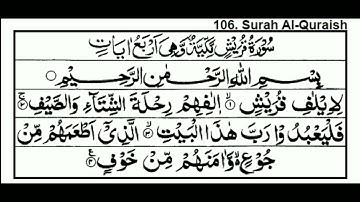 106. Surah Al-Quraish
سُوْرَةُ قُرَيْشٍ مَّكِّيَّةٌ وَّهِيَ اَرْبَعُ اٰيَاتٍ
بِسْمِ اللّٰهِ الرَّحْمٰنِ الرَّحِيْمِ
لِاِيْلٰفِ قُرَيْشٍ ۙ﴿۱﴾ اٖلٰفِهِمْ رِحْلَةَ الشِّتَآءِ وَالصَّيْفِ ۚ﴿۲﴾
فَلْيَعْبُدُوْا رَبَّ هٰذَا الْبَيْتِ ۙ﴿۳﴾ الَّذِيْٓ اَطْعَمَهُمْ مِّنْ
جُوْعٍ ۙ وَّاٰمَنَهُمْ مِّنْ خَوْفٍ ﴿۴﴾